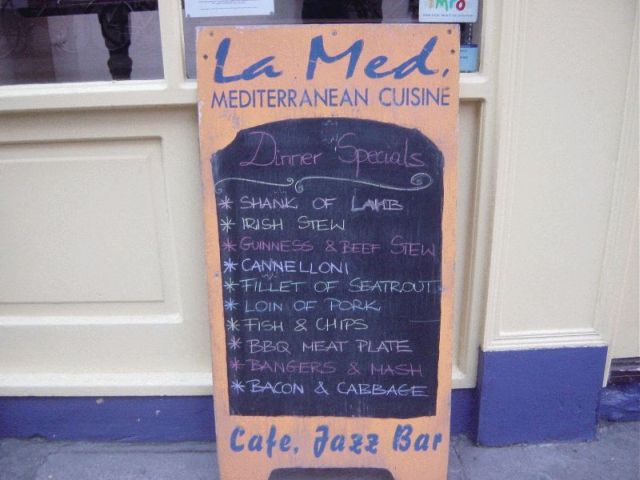 La Med.
MEDITERRANEAN CUISINE
Dinner Specials
* SHANK OF LAMB
* IRISH STEW
* GUINNESS & BEEF STEW
* CANNELLONI
* FILLET OF SEATROUT
* LOIN OF PORK
* FISH & CHIPS
* BBQ MEAT PLATE
* BANGERS & MASH
* BACON & CABBAGE
Cafe, Jazz Bar